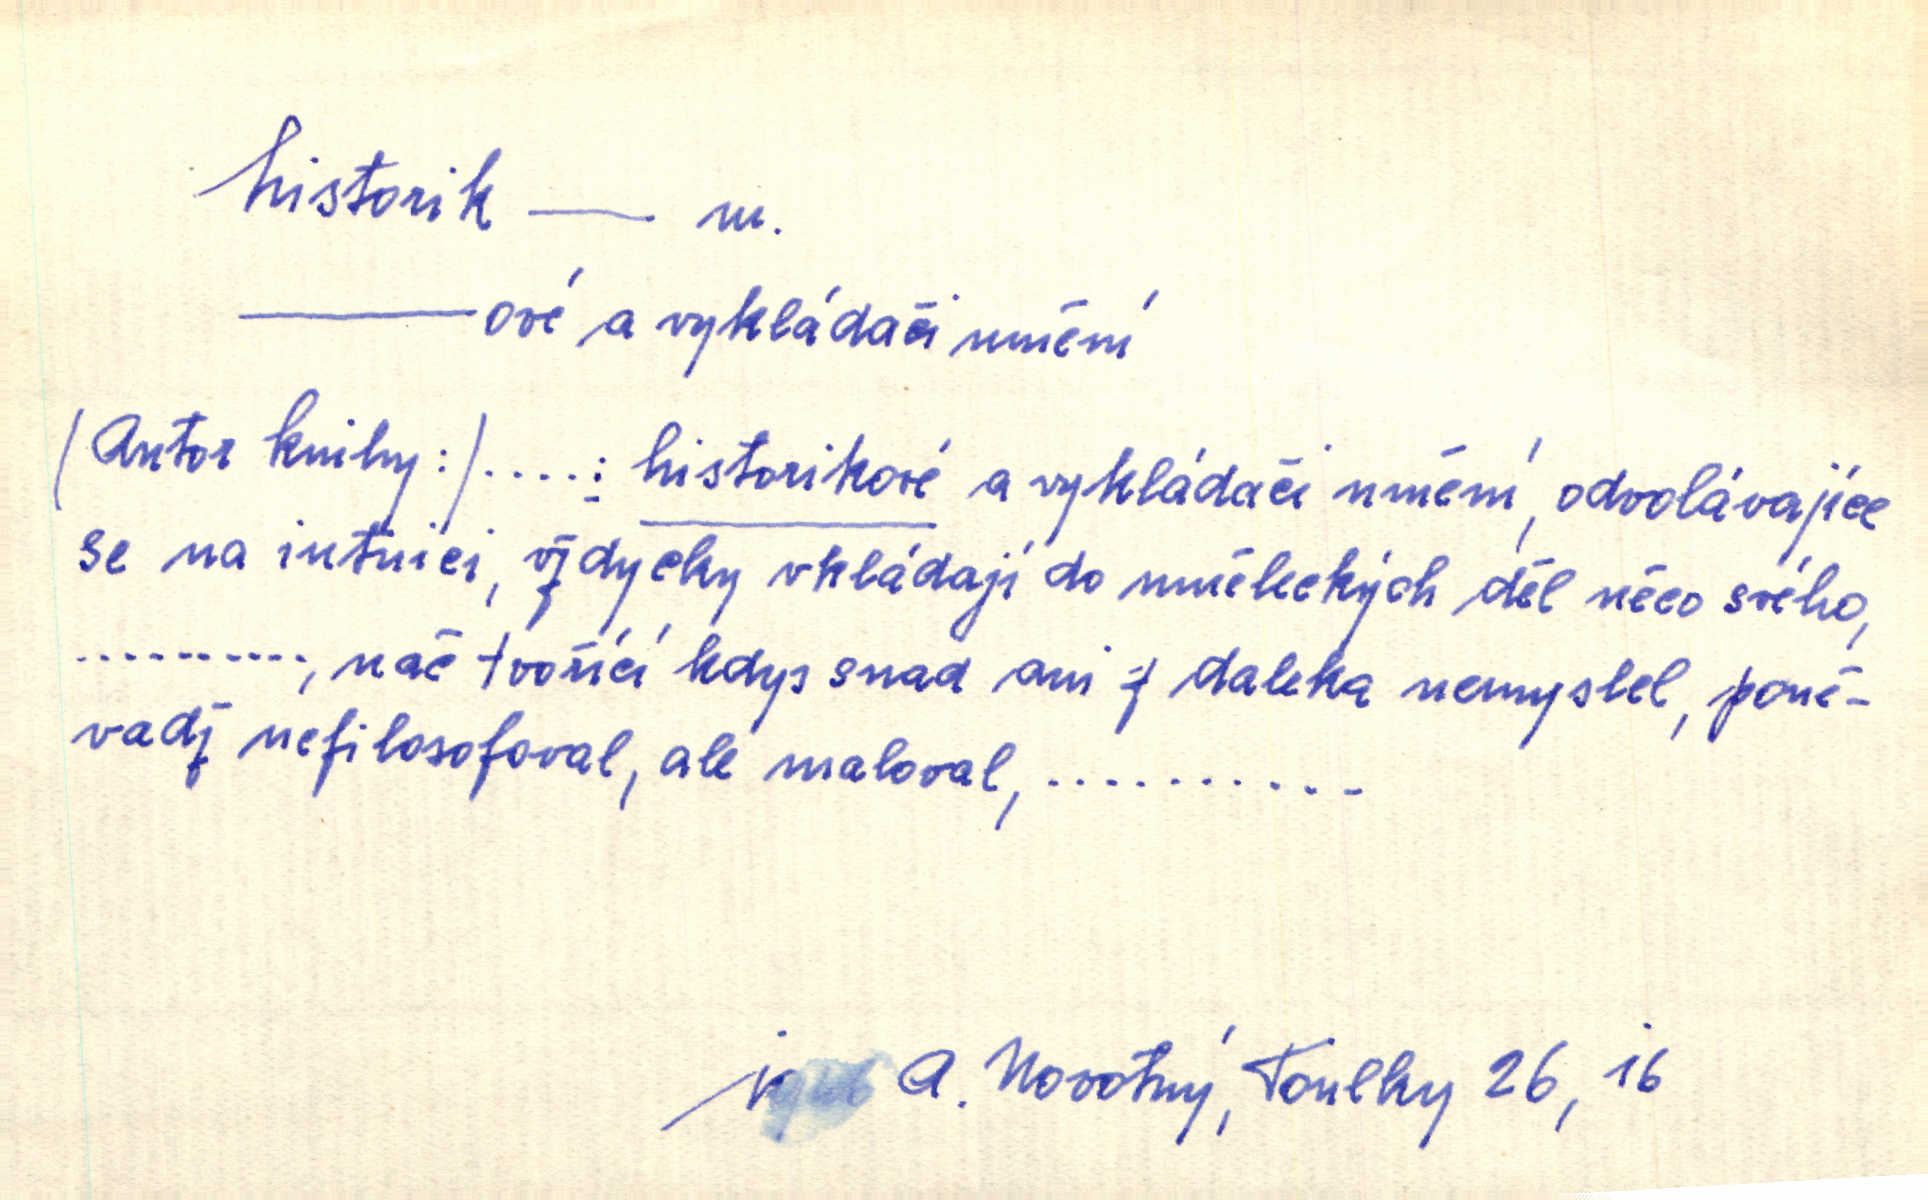 historik —— m.
———ové a vykládači umění
(Autor knihy:).....: historikové a vykládači umění, odvolávajíce
se na intuici, vždycky vkládají do uměleckých děl něco svého,
..........., nač tvořící kdys snad ani z daleka nemyslel, poně-
vadž nefilosofoval, ale maloval, ...........
A. Novotný, Toulky 26, 16